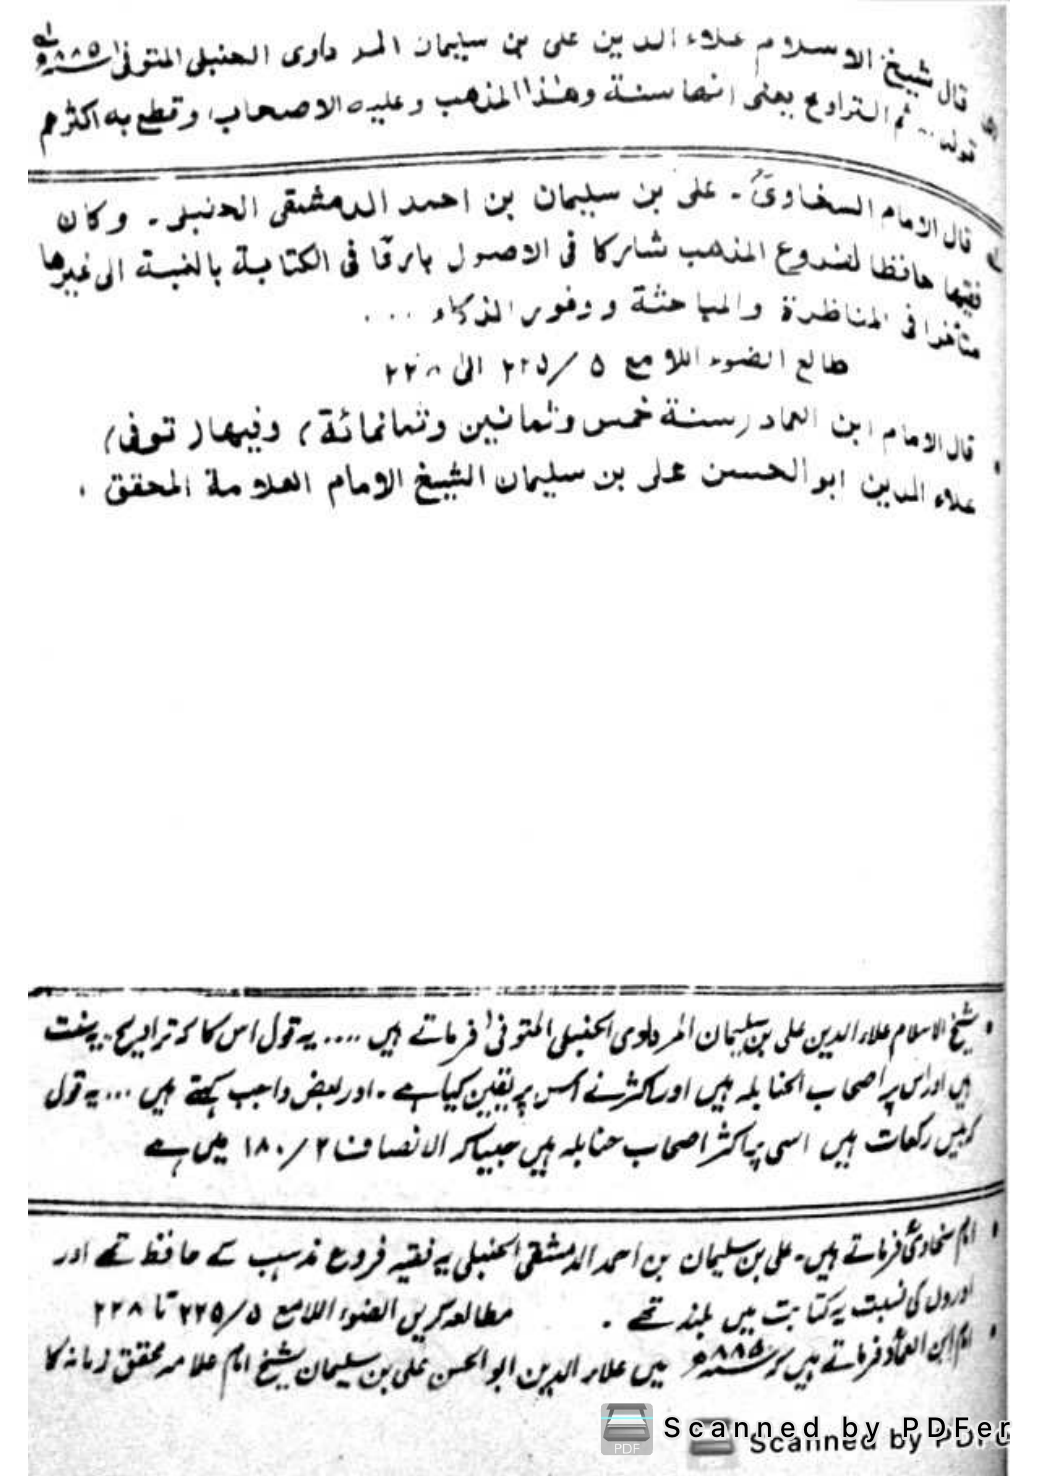 قال شیخ الاسلام علاء الدین علی بن سلیمان المرداوی الحنبلی المتوفی ۸۸۵ھ
قوله ... ثم التراویح یعنی انها سنة وهٰذا المذهب وعلیه الاصحاب وقطع به اکثرهم
قال الامام السخاویؒ ۔ علی بن سلیمان بن احمد الدمشقی الحنبلی ۔ وکان
فقیها حافظا لفروع المذهب شارکا فی الاصول بارعًا فی الکتابة بالنسبة الی غیرها
متأخرا فی المناظرة والمباحثة ووفور الذکاء ...
طالع الضوء اللامع ۵ / ۲۲۵ الی ۲۲۸
قال الامام ابن العماد (سنة خمس وثمانین وثمانمائة) وفیها (توفی)
علاء الدین ابوالحسن علی بن سلیمان الشیخ الامام العلامة المحقق .
شیخ الاسلام علاء الدین علی بن سلیمان المرداوی الحنبلی المتوفی فرماتے ہیں .... یہ قول اس کا کہ تراویح یہ سنت
ہیں اور اس پر اصحاب الحنابلہ ہیں اور اکثر نے اس پر یقین کیا ہے ۔ اور بعض واجب کہتے ہیں ... یہ قول
کہ بیس رکعات ہیں اسی پہ اکثر اصحاب حنابلہ ہیں جیساکہ الانصاف ۲ / ۱۸۰ میں ہے
امام سخاویؒ فرماتے ہیں ۔ علی بن سلیمان بن احمد الدمشقی الحنبلی یہ فقیہ فروع مذہب کے حافظ تھے اور
اوروں کی نسبت یہ کتابت میں بلند تھے ۔ مطالعہ کریں الضوء اللامع ۵ / ۲۲۵ تا ۲۲۸
امام ابن العمادؒ فرماتے ہیں کہ ۸۸۵ھ میں علاء الدین ابو الحسن علی بن سلیمان شیخ امام علامہ محقق زمانہ کا
Scanned by PDFer
Scanned by PDFe